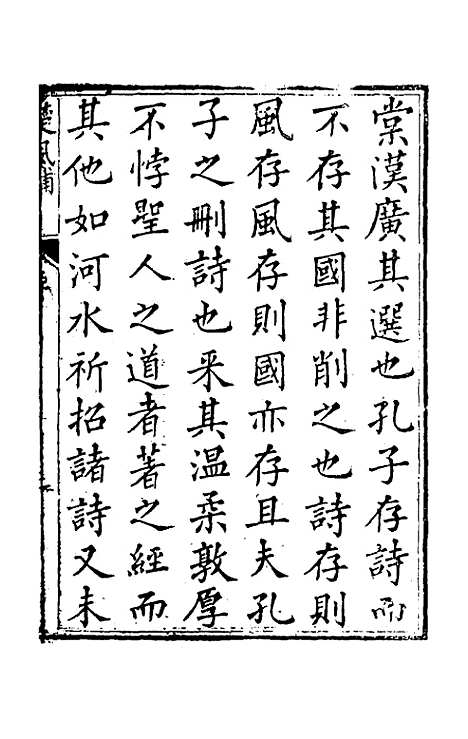 棠漢廣其選也孔子存詩而
不存其國非削之也詩存則
風存風存則國亦存且夫孔
子之刪詩也采其温柔敦厚
不悖聖人之道者著之經而
其他如河水祈招諸詩又未
楚風補